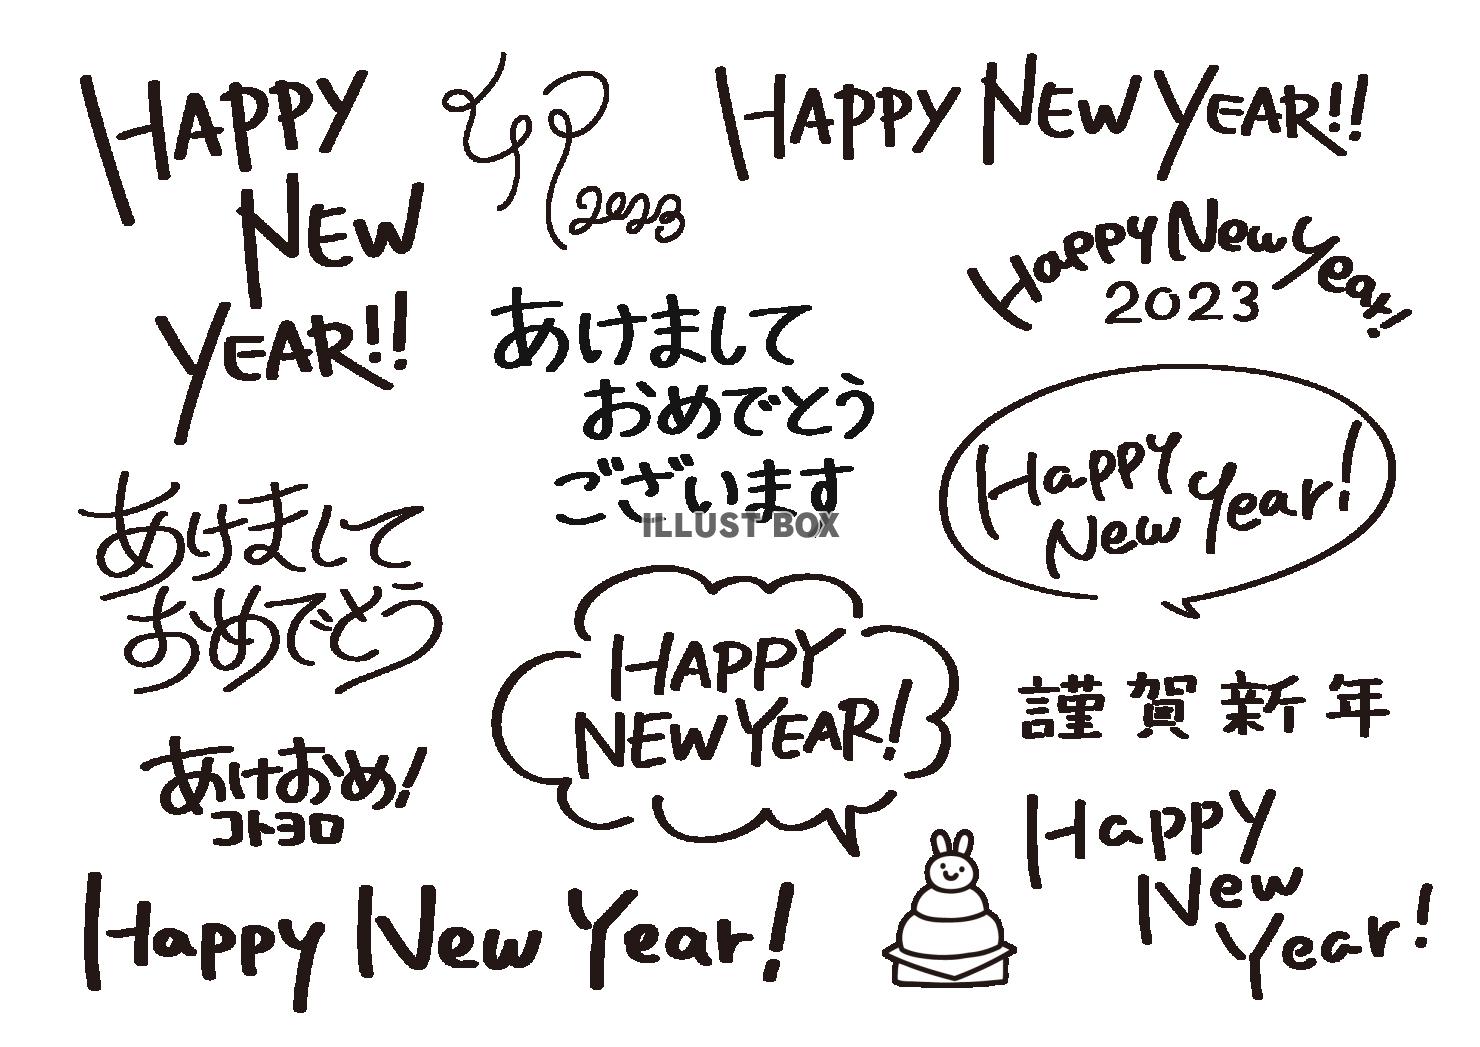 HAPPY
NEW
YEAR!!
卯
2023
HAPPY NEW YEAR!!
Happy New Year!
2023
あけまして
おめでとう
ございます
ILLUST BOX
Happy
New Year!
あけまして
おめでとう
HAPPY
NEW YEAR!
謹賀新年
あけおめ!
コトヨロ
Happy
New
Year!
Happy New Year!